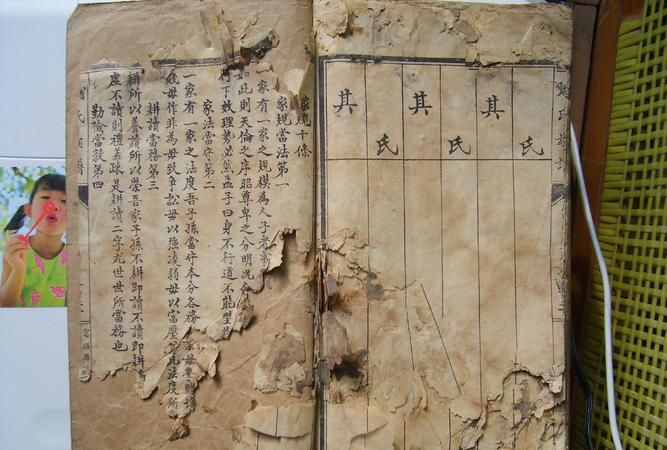 氏族譜
氏
其
氏
其
氏
其
家規十條
家規當法第一
一家有一家之規模為人子者
如此則天倫之序昭尊卑之分明況
下效理勢必然孟子曰身不行道不能型
家法當守第二
一家有一家之法度吾子孫當守本分各務
毋作非為毋致爭訟毋以強凌弱毋以富壓 此法度所
耕讀當務第三
耕所以養讀所以榮吾家子孫不耕即讀不讀即耕
度不讀則禮義疎是耕讀二字尤世世所當務也
勤儉當敦第四
氏族譜